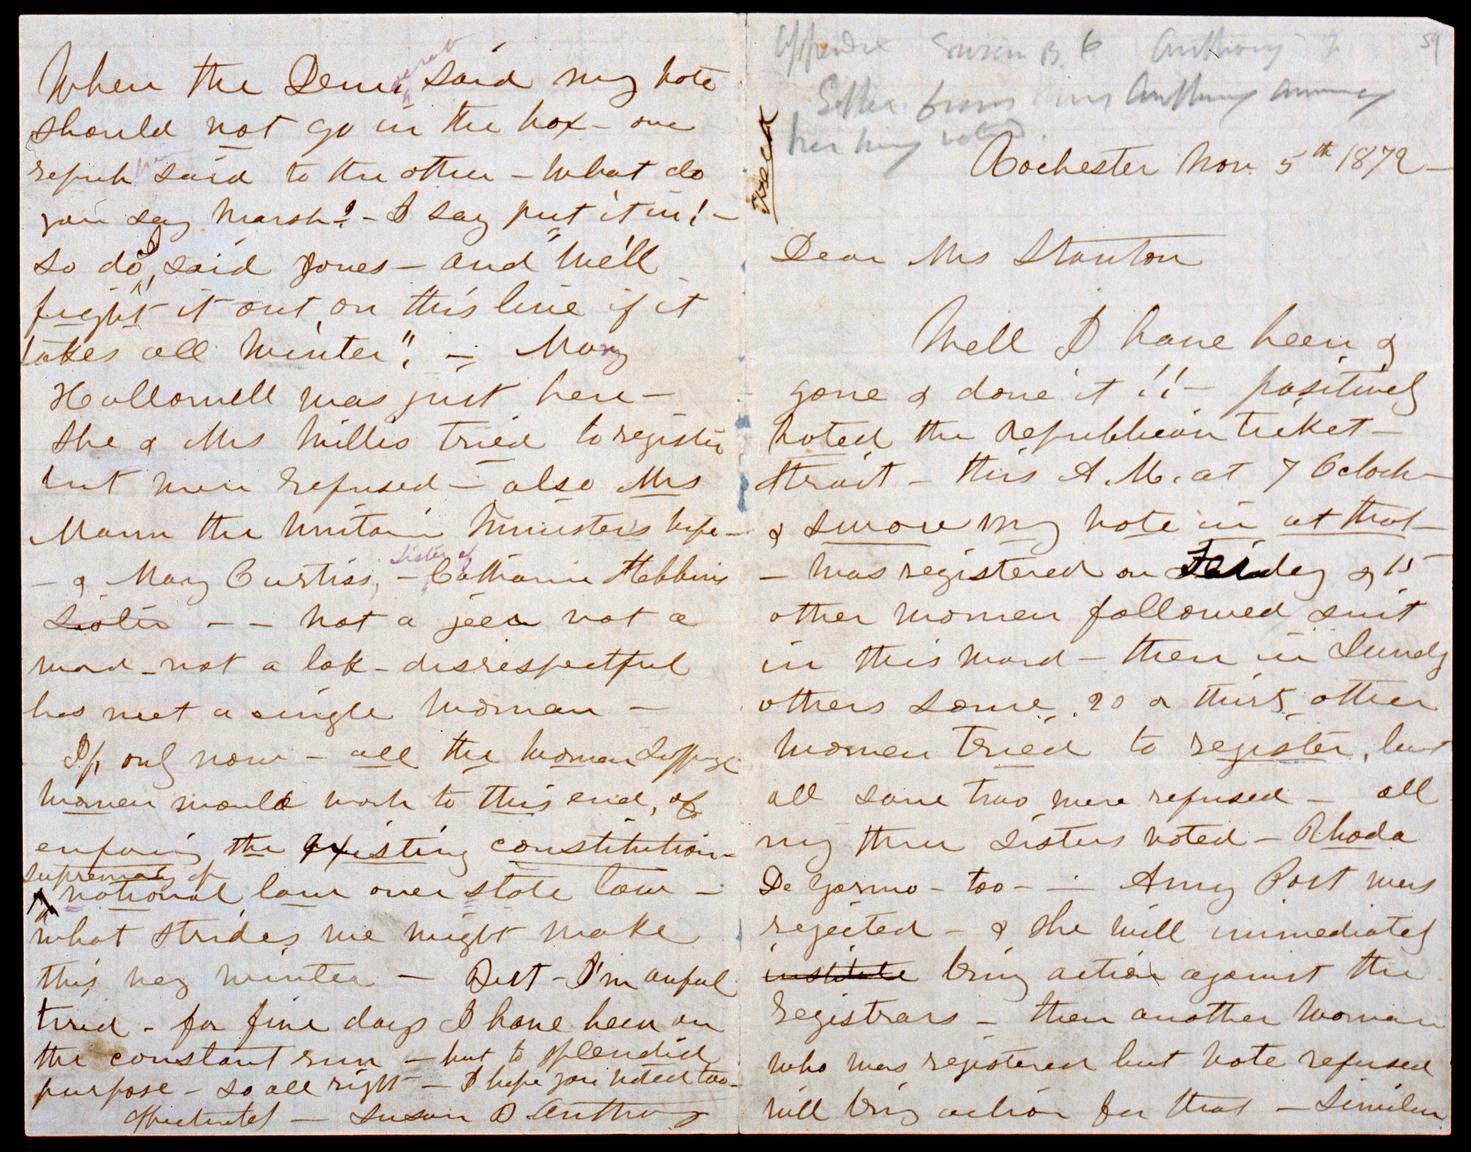 Susan B. Anthony
Letter from Miss Anthony announcing
her having voted
59
Rochester Nov. 5th 1872—
Dear Mrs Stanton
Well I have been &
gone & done it!!— positively
voted the republican ticket—
strait— this A.M. at 7 Oclock—
& swore my vote in at that—
— was registered on Friday & 15
other women followed suit
in this ward— then in Sundy
others some 20 or thirty other
women tried to register, but
all save two were refused— all
my three sisters voted— Rhoda
De Garmo— too— — Amy Post was
rejected— & she will immediately
institute bring action against the
registrars— then another woman
who was registered but vote refused
will bring action for that— similar
When the Democrat said my vote
should not go in the box— one
repub said to the other— What do
you say Marsh?— I say put it in!—
So do I, said Jones— and "we'll
fight it out on this line if it
takes all winter".— Mary
Hallowell was just here—
She & Mrs Willis tried to register
but were refused— also Mrs
Mann the Unitarian Minister's wife—
— & Mary Curtiss,— sister of Catharine Stebbins
Sister — — not a jeer not a
word— not a look— disrespectful
has met a single woman—
If only now— all the Woman Suffrage
women would work to this end, of
enforcing the existing constitution—
supremacy of
national law over state law—
what strides we might make
this very winter— But— I'm awful
tired— for five days I have been on
the constant run— but to splendid
purpose— so all right— I hope you voted too—
affectionately— Susan B Anthony